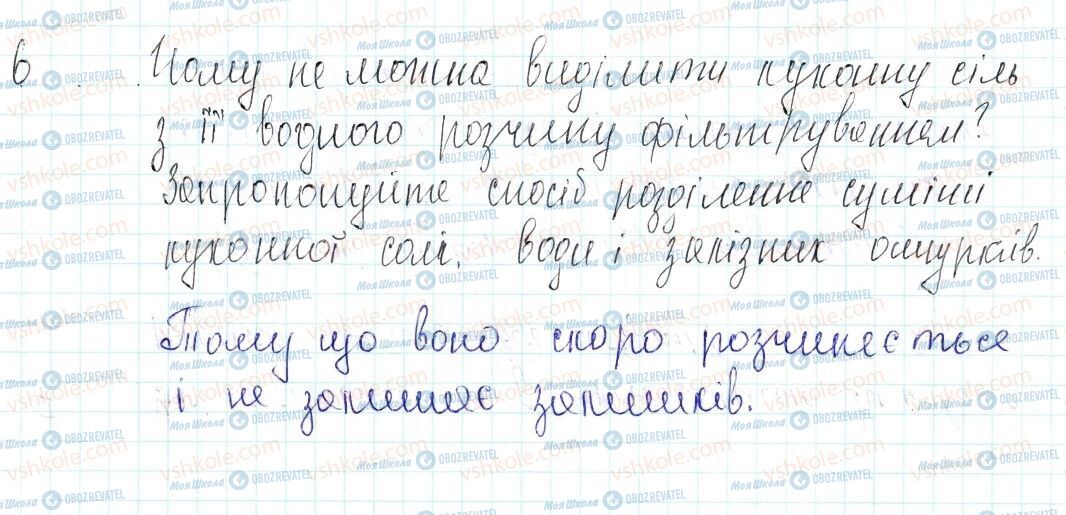 6 Чому не можна виділити кухонну сіль
з її водного розчину фільтруванням?
Запропонуйте спосіб розділення суміші
кухонної солі, води і залізних ошурків.
Тому що вона скоро розчиняється
і не залишає залишків.